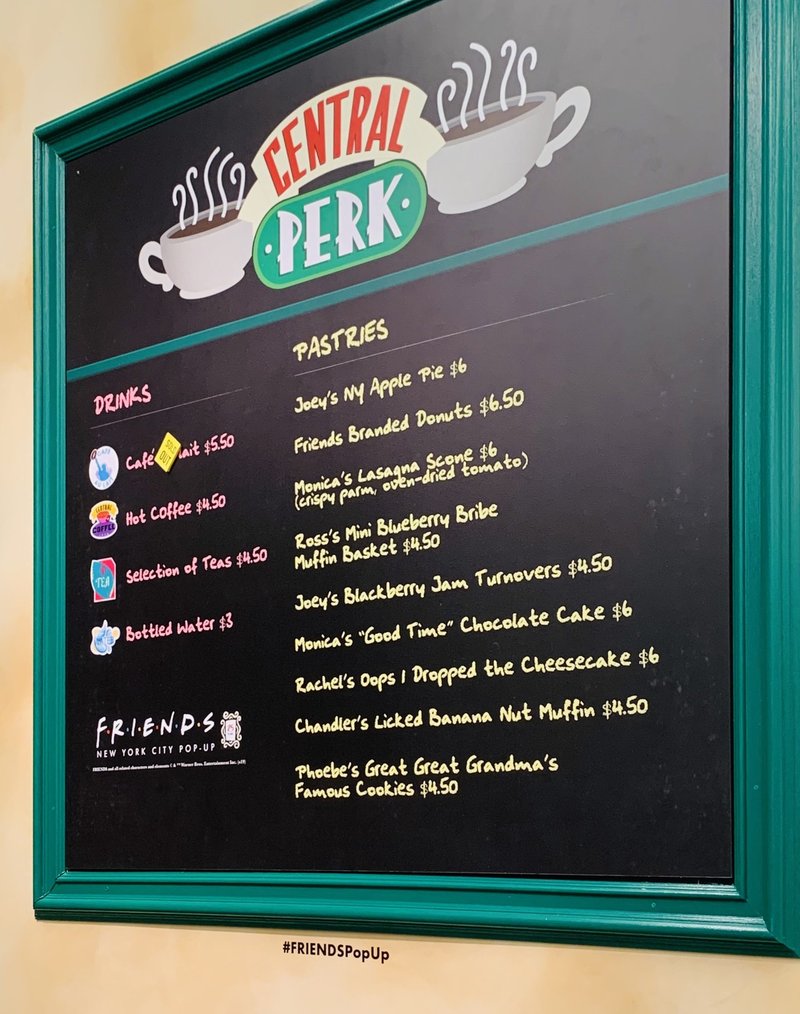 CENTRAL
PERK
DRINKS
Café ait $5.50
SOLD
OUT
Hot Coffee $4.50
CENTRAL
COFFEE
Selection of Teas $4.50
TEA
Bottled Water $3
F·R·I·E·N·D·S
NEW YORK CITY POP-UP
FRIENDS and all related characters and elements © & ™ Warner Bros. Entertainment Inc. (s19)
PASTRIES
Joey's NY Apple Pie $6
Friends Branded Donuts $6.50
Monica's Lasagna Scone $6
(crispy parm, oven-dried tomato)
Ross's Mini Blueberry Bribe
Muffin Basket $4.50
Joey's Blackberry Jam Turnovers $4.50
Monica's "Good Time" Chocolate Cake $6
Rachel's Oops I Dropped the Cheesecake $6
Chandler's Licked Banana Nut Muffin $4.50
Phoebe's Great Great Grandma's
Famous Cookies $4.50
#FRIENDSPopUp